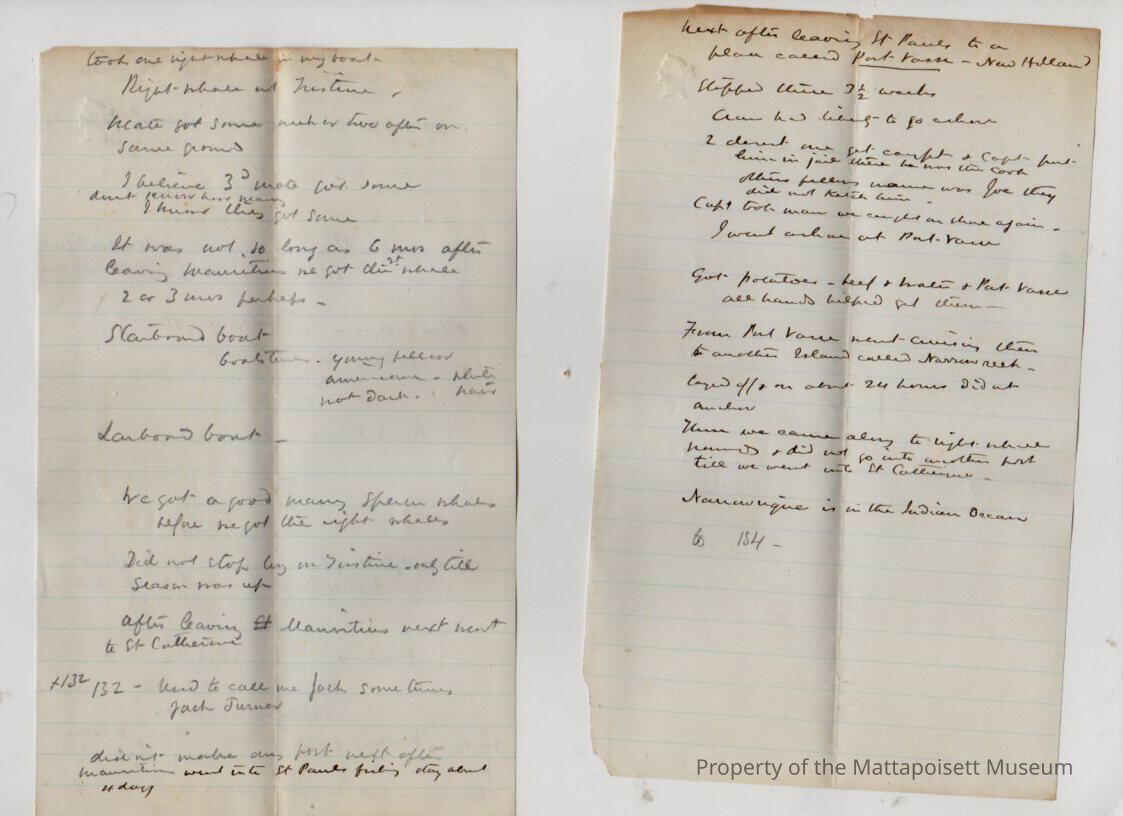 took one right whale in my boat
Right whale at Tristine.
Mate got some week or two after on
same ground
I believe 3d mate got some
don't know how many
I know they got some
It was not so long as 6 mos after
leaving Mauritius we got this whale
2 or 3 mos perhaps -
Starboard boat
boatsteerer - young fellow
American - white
not dark. hair
Larboard boat -
We got a good many Sperm whales
before we got the right whales
Did not stop long on Tristine - only till
season was up
After leaving St Mauritius next went
to St Catherine
+132 132 - Used to call me Jack sometimes
Jack Turner
did not make any port next after
Mauritius went into St Pauls fishing stay about
4 days
Next after leaving St Pauls to a
place called Port Vasse - New Holland
Stopped there 3 1/2 weeks
Crew had liberty to go ashore
2 desert one got caught & Capt put
him in jail there he was the cook
others fellows name was Joe they
did not ketch him.
Capt took man we caught on shore again -
I went ashore at Port Vasse
Got potatoes - beef & water & Port Vasse
all hands helped get them -
From Port Vasse went cruising then
to another Island called Narrowreek -
layed off & on about 24 hours did not
anchor
Then we came along to right whale
grounds & did not go into another port
till we went into St Catherine -
Narrowrigue is in the Indian Ocean
to 154 -
Property of the Mattapoisett Museum